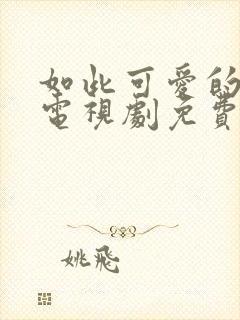 如此可愛的
電視劇免費
姚飛